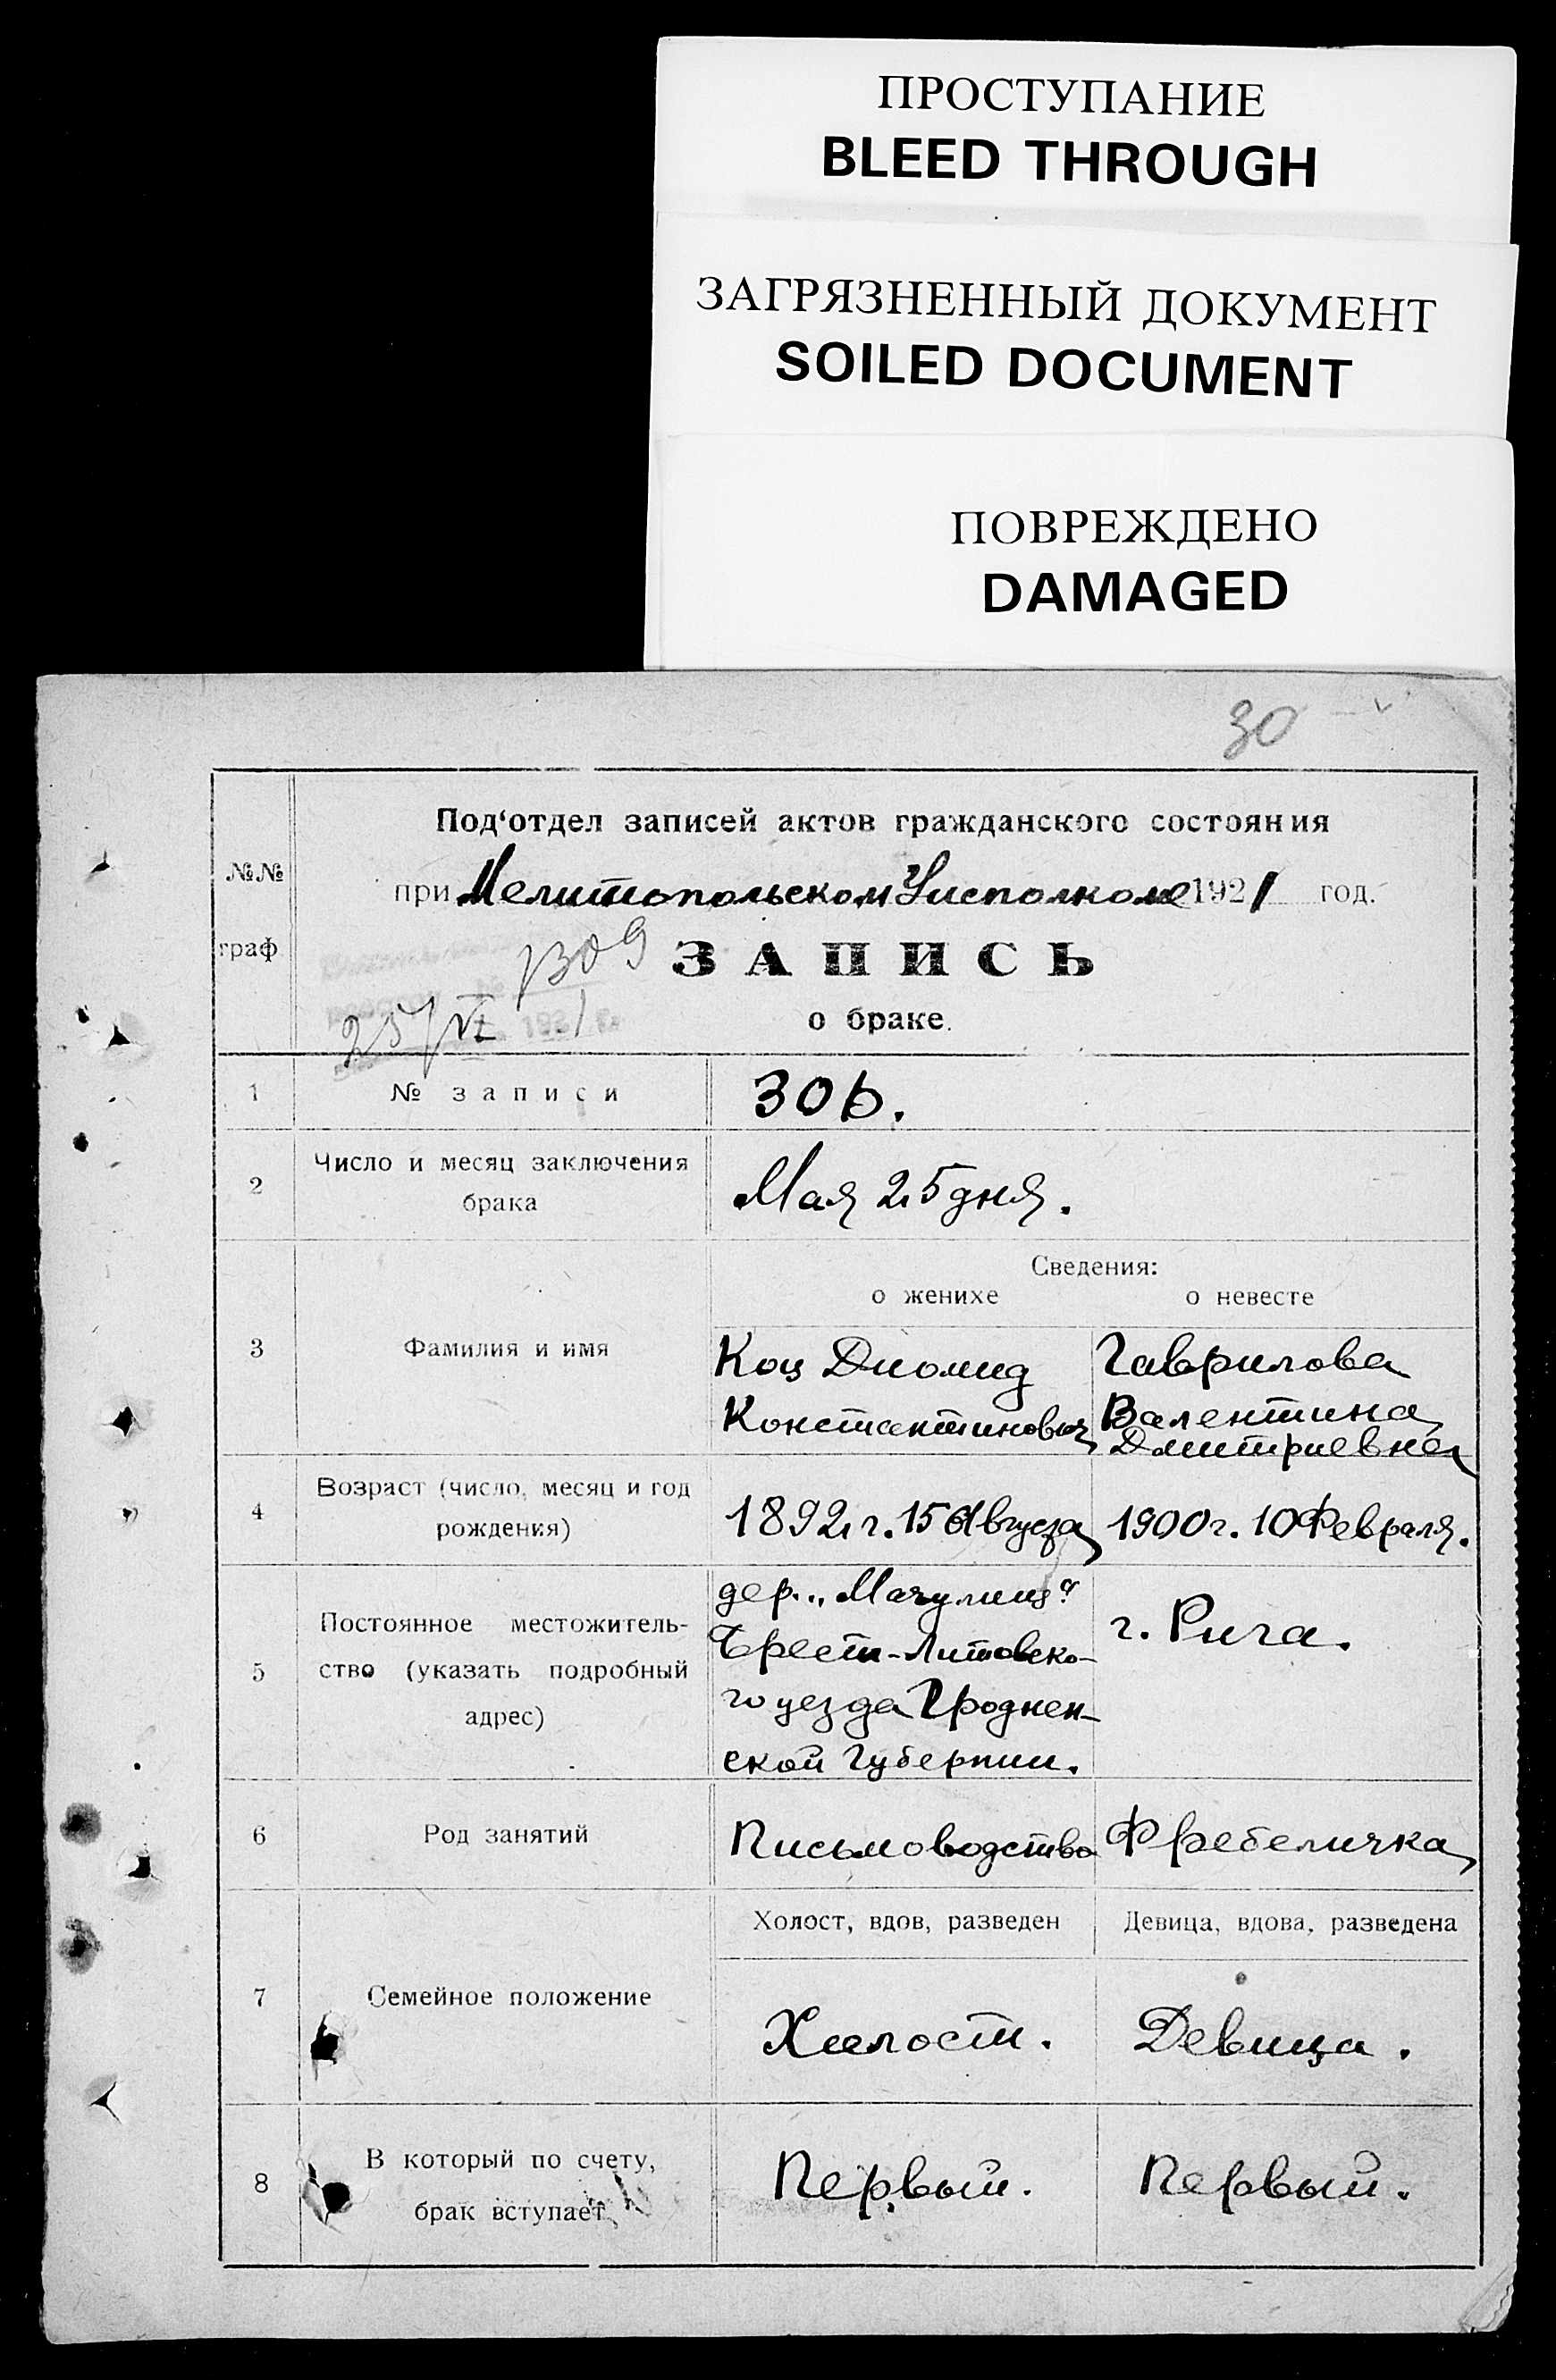 ПРОСТУПАНИЕ
BLEED THROUGH
ЗАГРЯЗНЕННЫЙ ДОКУМЕНТ
SOILED DOCUMENT
ПОВРЕЖДЕНО
DAMAGED
30
№№
граф
Под‘отдел записей актов гражданского состояния
при Мелитопольском Уисполкоме 1921 год.
1309
ЗАПИСЬ
25/VI 1921 г.
о браке.
1 № записи 306.
2 Число и месяц заключения
брака
Мая 25 дня.
Сведения:
о женихе о невесте
3 Фамилия и имя
Коц Диомид
Константинович
Гаврилова
Валентина
Дмитриевна
4 Возраст (число, месяц и год
рождения)
1892 г. 15 Августа
1900 г. 10 Февраля.
5 Постоянное местожитель-
ство (указать подробный
адрес)
дер. „Мачулищ"
Брест-Литовско-
го уезда Гроднен-
ской Губернии.
г. Рига.
6 Род занятий
Письмоводство
Фребеличка
7 Семейное положение
Холост, вдов, разведен
Девица, вдова, разведена
Холост.
Девица.
8 В который по счету,
брак вступает
Первый.
Первый.